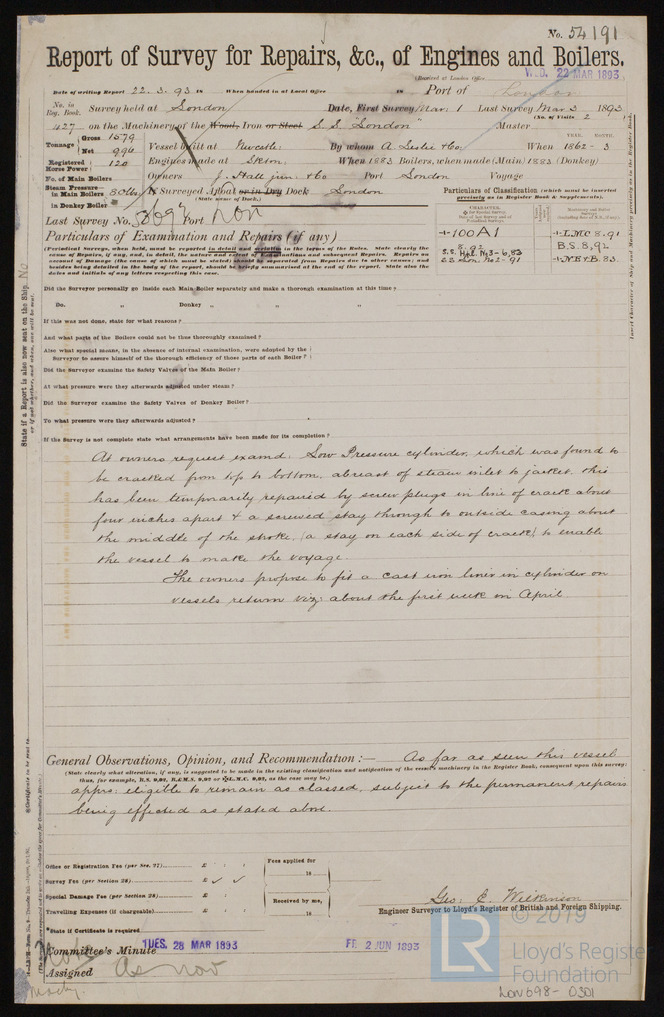 No. 54191
Report of Survey for Repairs, &c., of Engines and Boilers.
(Received at London Office WED. 22 MAR 1893
Date of writing Report 22.3.93 When handed in at Local Office 18 Port of London
No. in Reg. Book. Survey held at London Date, First Survey Mar: 1 Last Survey Mar 3 1893
(No. of Visits 2 )
427 on the Machinery of the Wood, Iron or Steel S.S. "London" Master
Tonnage Gross 1579 Net 996 Vessel built at Newcastle By whom A Leslie & Co When 1862-3
YEAR. MONTH.
Registered Horse Power 120 Engines made at When 1883 Boilers, when made (Main) 1883 (Donkey)
No. of Main Boilers Owners J. Hall jun: & Co Port London Voyage
Steam Pressure in Main Boilers 80 lbs Is Surveyed Afloat or in Dry Dock London
in Donkey Boiler (State name of Dock.)
Particulars of Classification (which must be inserted precisely as in Register Book & Supplements).
Last Survey No. Port Lon
+100A1
8,92
S.S. Hpl. No3-6,83
S.S. Lon. No2-91
+LMC 8.91
B.S. 8,92
+NE&B. 83
Particulars of Examination and Repairs (if any)
(Periodical Surveys, when held, must be reported in detail and seriatim in the terms of the Rules. State clearly the
cause of Repairs, if any, and, in detail, the nature and extent of Examinations and subsequent Repairs. Repairs on
account of Damage (the cause of which must be stated) should be separated from Repairs due to other causes; and
besides being detailed in the body of the report, should be clearly summarised at the end of the report. State also the
dates and initials of any letters respecting this case.)
Did the Surveyor personally go inside each Main Boiler separately and make a thorough examination at this time?
Do. " Donkey " " "
If this was not done, state for what reasons?
And what parts of the Boilers could not be thus thoroughly examined?
Also what special means, in the absence of internal examination, were adopted by the
Surveyor to assure himself of the thorough efficiency of those parts of each Boiler?
Did the Surveyor examine the Safety Valves of the Main Boiler?
At what pressure were they afterwards adjusted under steam?
Did the Surveyor examine the Safety Valves of Donkey Boiler?
To what pressure were they afterwards adjusted?
If the Survey is not complete state what arrangements have been made for its completion?
At owners request examd: Low Pressure cylinder, which was found to
be cracked from top to bottom, abreast of steam inlet to jacket, this
has been temporarily repaired by screw plugs in line of crack about
four inches apart & a screwed stay through to outside casing about
the middle of the stroke, (a stay on each side of crack) to enable
the vessel to make the voyage
The owners propose to fit a cast iron liner in cylinder on
vessels return viz: about the first week in April.
General Observations, Opinion, and Recommendation:— As far as seen this vessel
(State clearly what alteration, if any, is suggested to be made in the existing classification and notification of the vessel's machinery in the Register Book, consequent upon this survey:
thus, for example, B.S. 9,92, B.&M.S. 9,92 or +L.M.C. 9,92, as the case may be.)
apprs: eligible to remain as classed, subject to the permanent repairs
being effected as stated above.
Office or Registration Fee (per Sec. 27) £
Fees applied for
18
Survey Fee (per Section 28) £
Special Damage Fee (per Section 28) £
Received by me,
Travelling Expenses (if chargeable) £
18
*State if Certificate is required
Geo: C. Wilkinson
Engineer Surveyor to Lloyd's Register of British and Foreign Shipping.
Committee's Minute TUES. 28 MAR 1893 FRI. 2 JUN 1893
Assigned As now
© 2019
LR
Lloyd's Register
Foundation
LON698-0301
State if a Report is also now sent on the Ship. No
or if not, whether, and when, one will be sent.
Insert Character of Ship and Machinery precisely as in the Register Book.